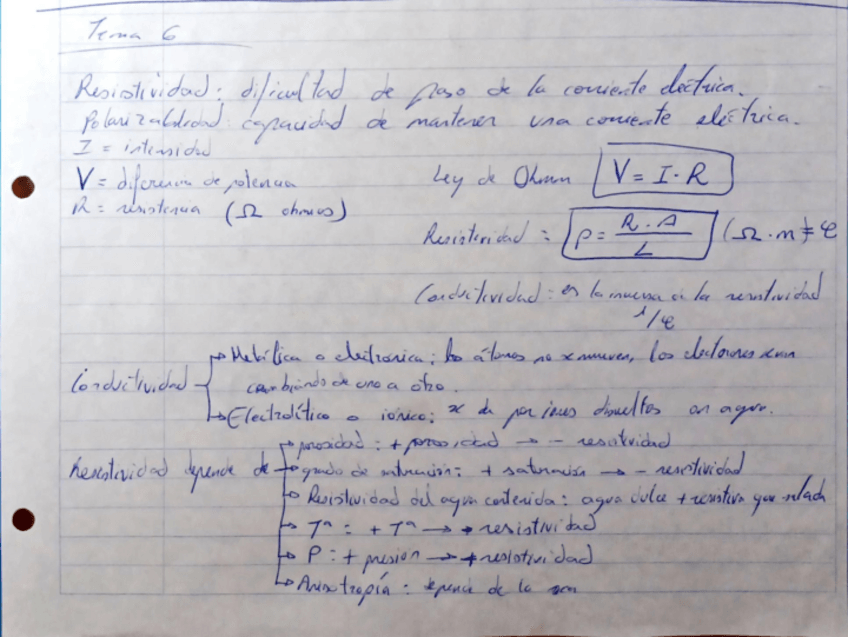 Tema 6
Resistividad: dificultad de paso de la corriente eléctrica.
Polarizabilidad: capacidad de mantener una corriente eléctrica.
I = intensidad
V = diferencia de potencia
R = resistencia (Ω ohmios)
Ley de Ohmn V = I · R
Resistividad = ρ = R · A / L (Ω · m) = φ
Conductividad: es la inversa a la resistividad
1/φ
Conductividad
Metálica o electronica: los átomos no x mueven, los electrones van
cambiando de uno a otro.
Electrolítico o iónico: x da por iones disueltos en agua.
Resistividad depende de
porosidad: + porosidad → - resistividad
grado de saturación: + saturación → - resistividad
Resistividad del agua contenida: agua dulce + resistiva que salada
Tª: + Tª → + resistividad
P: + presion → + resistividad
Anisotropía: depende de la